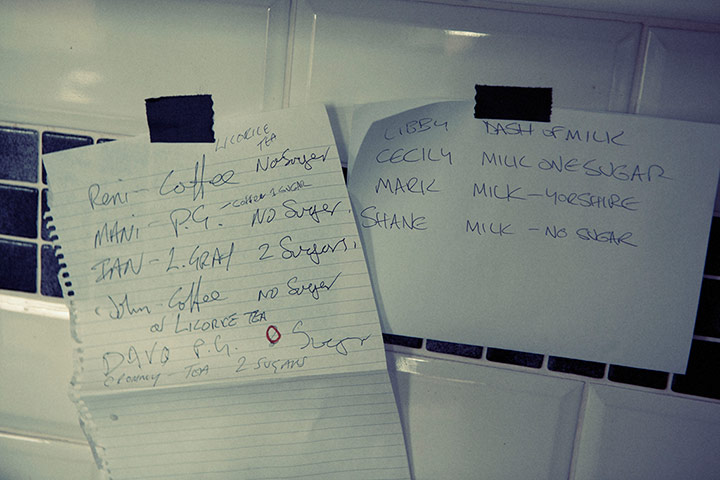 LICORICE
TEA
Reni - Coffee No Sugar
- COFFEE 2 SUGAR
MANI - P.G. NO Sugar.
IAN - L. GRAY 2 Sugars.
John - Coffee NO Sugar
or LICORICE TEA
DAVO P.G. O Sugar
CRONNEY - TEA 2 SUGARS
LIBBY DASH OF MILK
CECILY MILK ONE SUGAR
MARK MILK - YORSHIRE
SHANE MILK - NO SUGAR